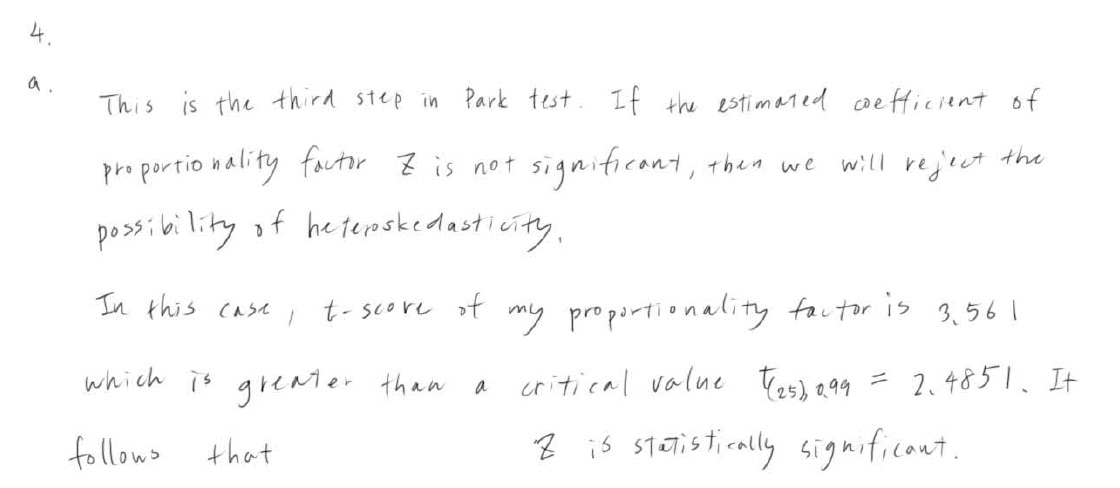 4.
a.
This is the third step in Park test. If the estimated coefficient of
proportionality factor Z is not significant, then we will reject the
possibility of heteroskedasticity.
In this case, t-score of my proportionality factor is 3.561
which is greater than a critical value t(25),0.99 = 2.4851. It
follows that Z is statistically significant.